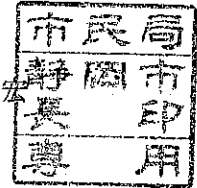 市民局
静岡市
宏
長印
専用